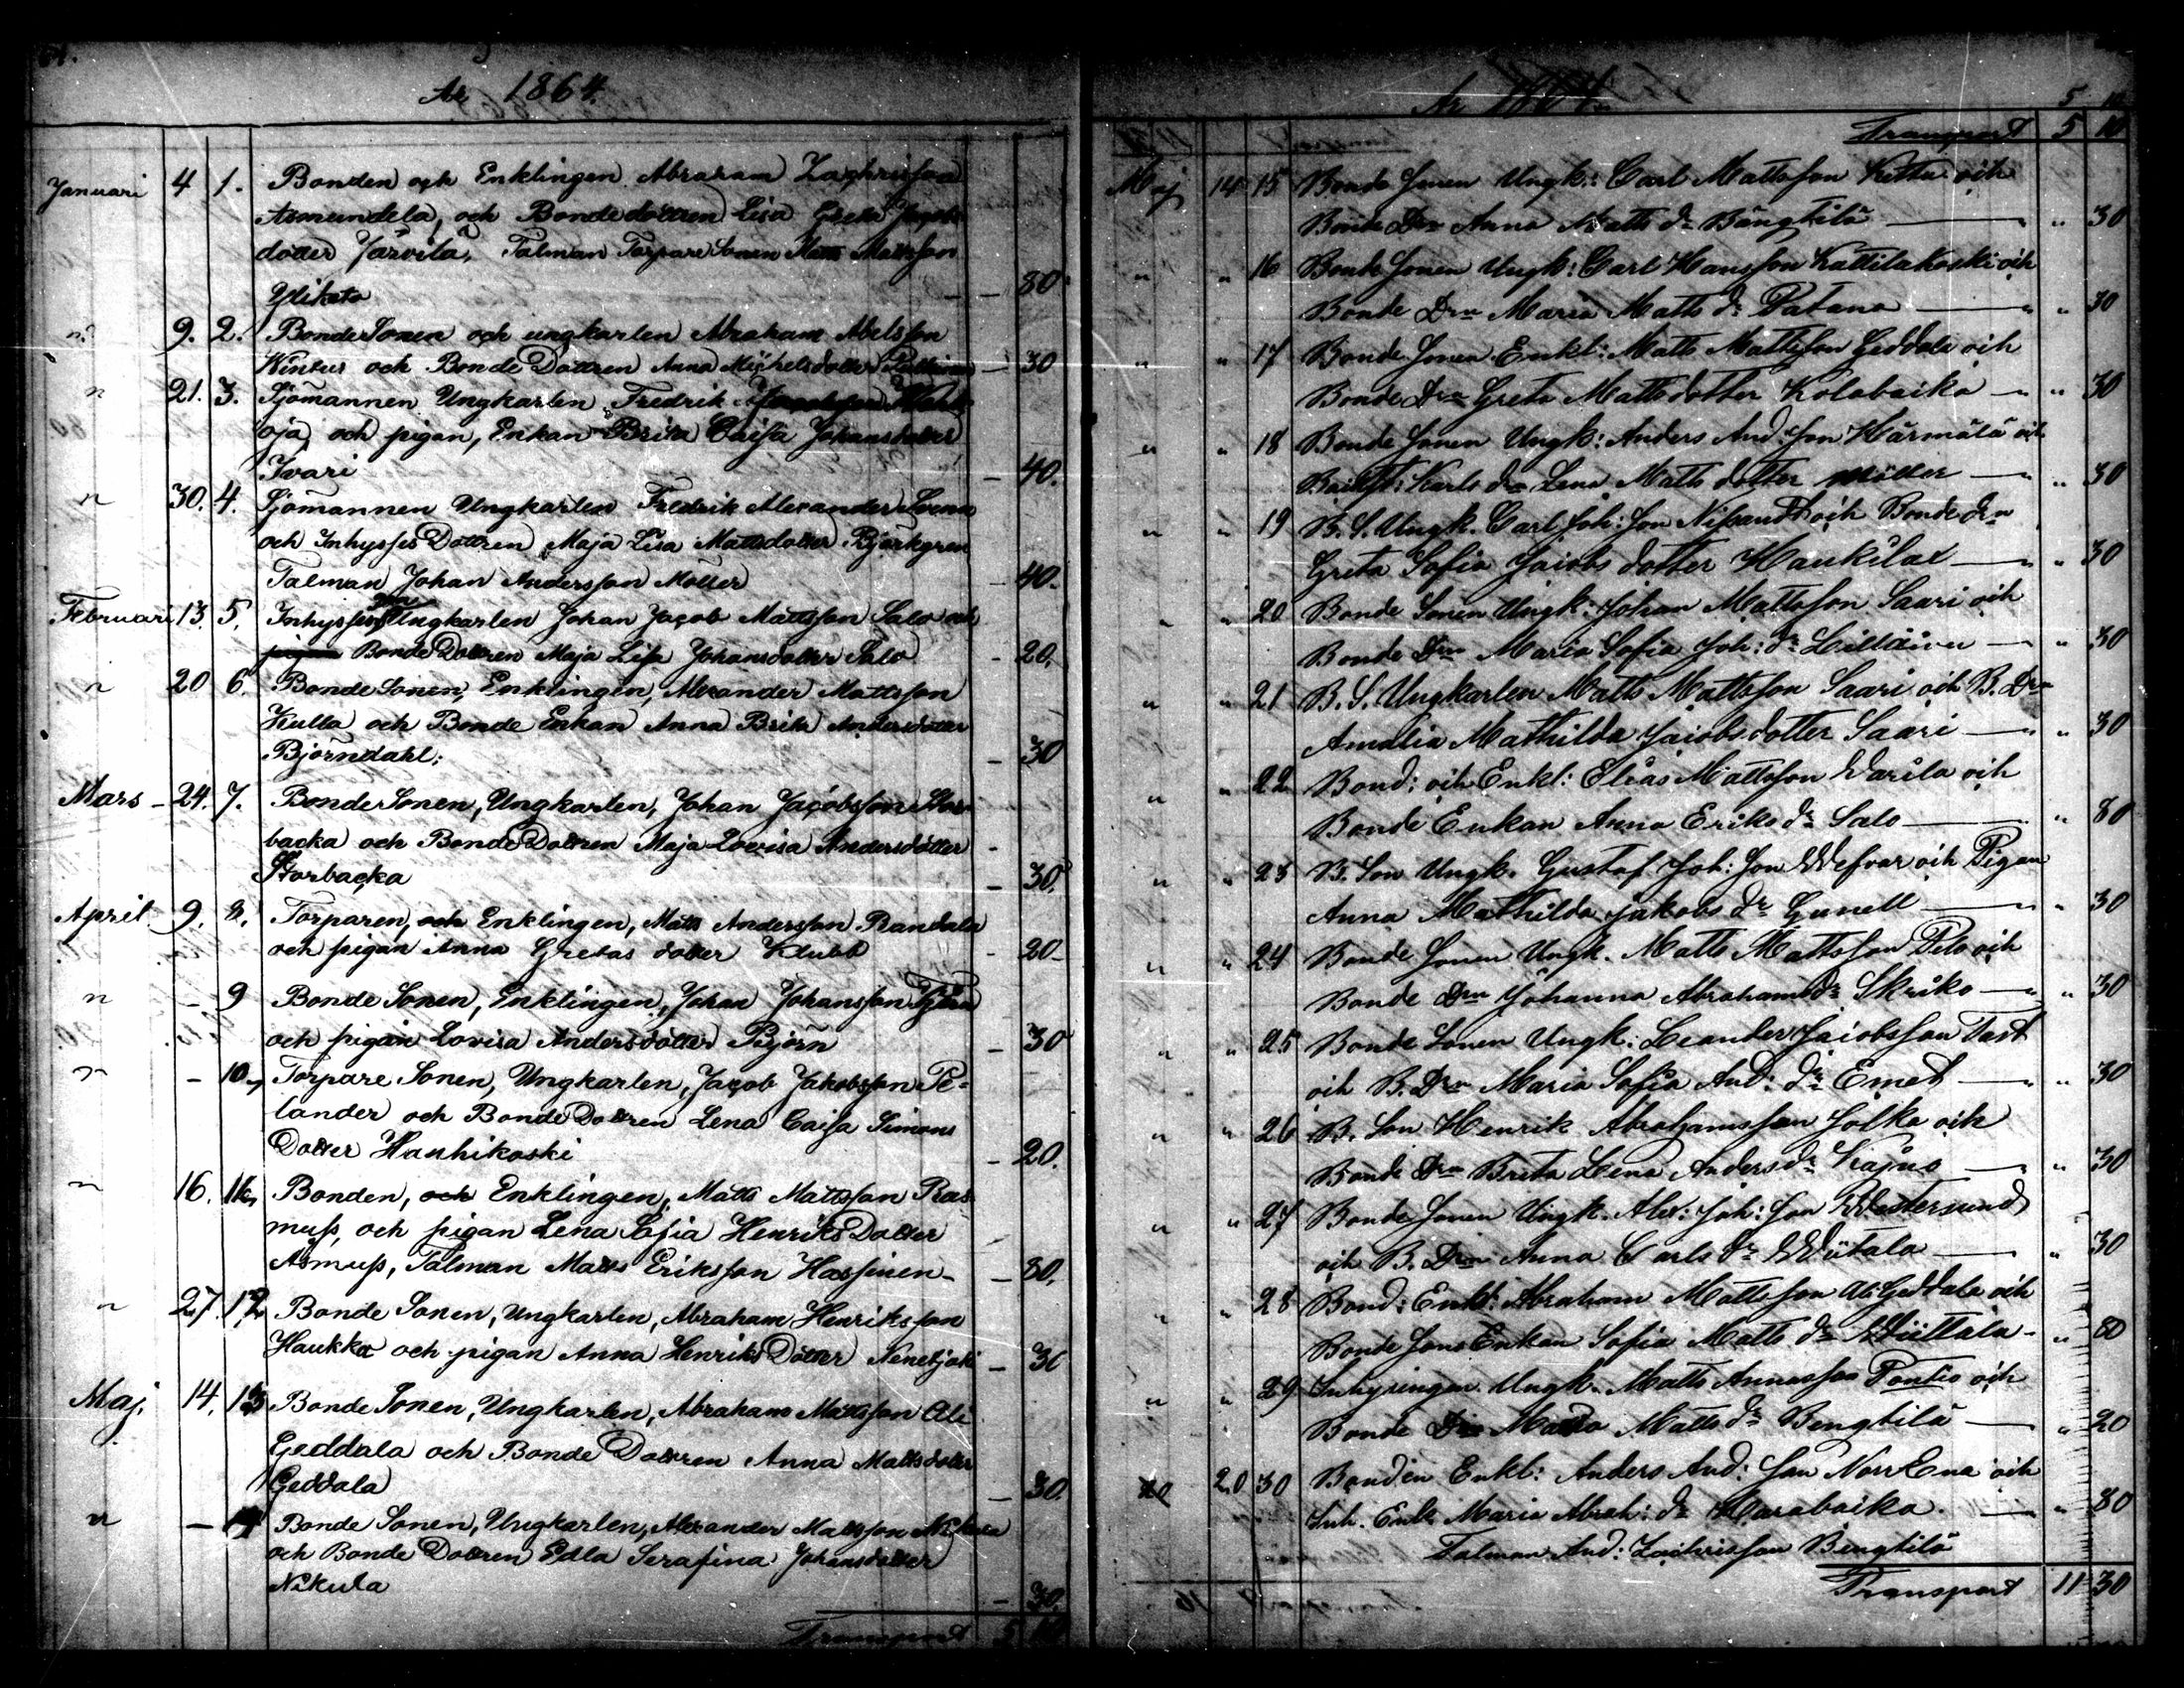 År 1864.
Januari 4 1. Bonden och Enklingen Abraham Zachrisson
Asmundela, och Bondedottren Lisa Greta Jacobs
dotter Järvilä, Talman Torpare Sonen Matts Mattsson
Ylikato — — 80
n 9. 2. Bonde Sonen och ungkarlen Abraham Abelsson
Wintus och Bonde Dottren Anna Michelsdotter — 30
n 21. 3. Sjömannen Ungkarlen Fredrik
oja och pigan, Enkan Brita Caisa Johansdotter
Ivari — 40.
n 30. 4. Sjömannen Ungkarlen Fredrik Alexander
och Inhysses Dottren Maja Lisa Mattsdotter Björkgren
Talman Johan Andersson Möller — 40.
Februari 13. 5. Inhysses Son Ungkarlen Johan Jacob Mattsson Salo och
Bonde Dottren Maja Lisa Johansdotter Salo — 20.
n 20 6. Bonde Sonen, Enklingen, Alexander Mattsson
Kulla och Bonde Enkan Anna Brita Andersdotter
Björndahl. — 30
Mars — 24. 7. Bonde Sonen, Ungkarlen, Johan Jacobsson Stor
backa och Bonde Dottren Maja Lovisa Andersdotter
Storbacka — 30.
April 9. 8. Torparen, och Enklingen, Matts Andersson Randala
och pigan Anna Gretas dotter Klubb — 20
n — 9 Bonde Sonen, Enklingen, Johan Johansson
och pigan Lovisa Andersdotter Björn — 30
n — 10 Torpare Sonen, Ungkarlen, Jacob Jakobsson Pe-
lander och Bonde Dottren Lena Caisa Simons
Dotter Hauhikoski — 20.
n 16. 11. Bonden, och Enklingen, Matts Mattsson Ras
muss, och pigan Lena Sofia Henriks Dotter
Asmuss, Talman Matts Eriksson Hassinen — 80.
n 27. 12 Bonde Sonen, Ungkarlen, Abraham Henriksson
Haukka och pigan Anna Henriks Dotter — 30
Maj. 14. 13 Bonde Sonen, Ungkarlen, Abraham Mattsson Ali
Geddala och Bonde Dottren Anna Mattsdotter
Geddala — 30.
n — 14 Bonde Sonen, Ungkarlen, Alexander Mattsson Nikula
och Bonde Dottren Edla Serafina Johansdotter
Nikula — 30.
Transport 5 10
År 1864.
5 10
Transport 5 10
Maj 14 15 Bonde Sonen Ungk: Carl Mattsson Kettu och
Bonde Drn Anna Matts dr Bängtilä — " 30
" " 16 Bonde Sonen Ungk: Carl Hansson Kattilakoski och
Bonde Drn Maria Matts dr Patana — " 30
" " 17 Bonde Sonen Enkl: Matts Mattsson Geddala och
Bonde Drn Greta Mattsdotter Kolabaika — " 30
" " 18 Bonde Sonen Ungk: Anders And: Son Härmälä och
Karls dr Lena Matts dotter Möller — " 30
" " 19 B. S. Ungk. Carl Joh: Son Nissandt och Bonde drn
Greta Sofia Jacobs dotter Haukilax — " 30
" " 20 Bonde Sonen Ungk: Johan Mattsson Saari och
Bonde Drn Maria Sofia Joh: dr — " 30
" " 21 B. S. Ungkarlen Matts Mattsson Saari och B. Drn
Amalia Mathilda Jacobsdotter Saari — " 30
" " 22 Bond: och Enkl: Elias Mattsson Warila och
Bonde Enkan Anna Eriks dr Salo — " 80
" " 23 B. Son Ungk. Gustaf Joh: Son Wefvar och Pigan
Anna Mathilda Jakobs dr Gunell — " 30
" " 24 Bonde Sonen Ungk. Matts Mattsson Pelo och
Bonde Drn Johanna Abrahams dr Skriko — " 30
" " 25 Bonde Sonen Ungk: Leander Jacobsson Tast
och B. Drn Maria Sofia And: dr Emet — " 30
" " 26 B. Son Henrik Abrahamsson Jolka och
Bonde Drn Brita Lena Anders dr Krajus — " 30
" " 27 Bonde Sonen Ungk. Alex: Joh: Son Westersund
och B. Drn Anna Carls dr Wiitala — " 30
" " 28 Bond: Enkl: Abraham Mattsson Ali Geddala och
Bonde Sons Enkan Sofia Matts dr Wiittala — " 80
" " 29 Inhysingen Ungk. Matts Annasson Pontio och
Bonde Drn Matts dr Bengtilä — " 20
20 30 Bonden Enkl: Anders And: Son Norr Ena och
Inh. Enk. Maria Abrah: dr Harabacka. — " 80
Talman And: Zachrisson Bengtilä
Transport 11 30